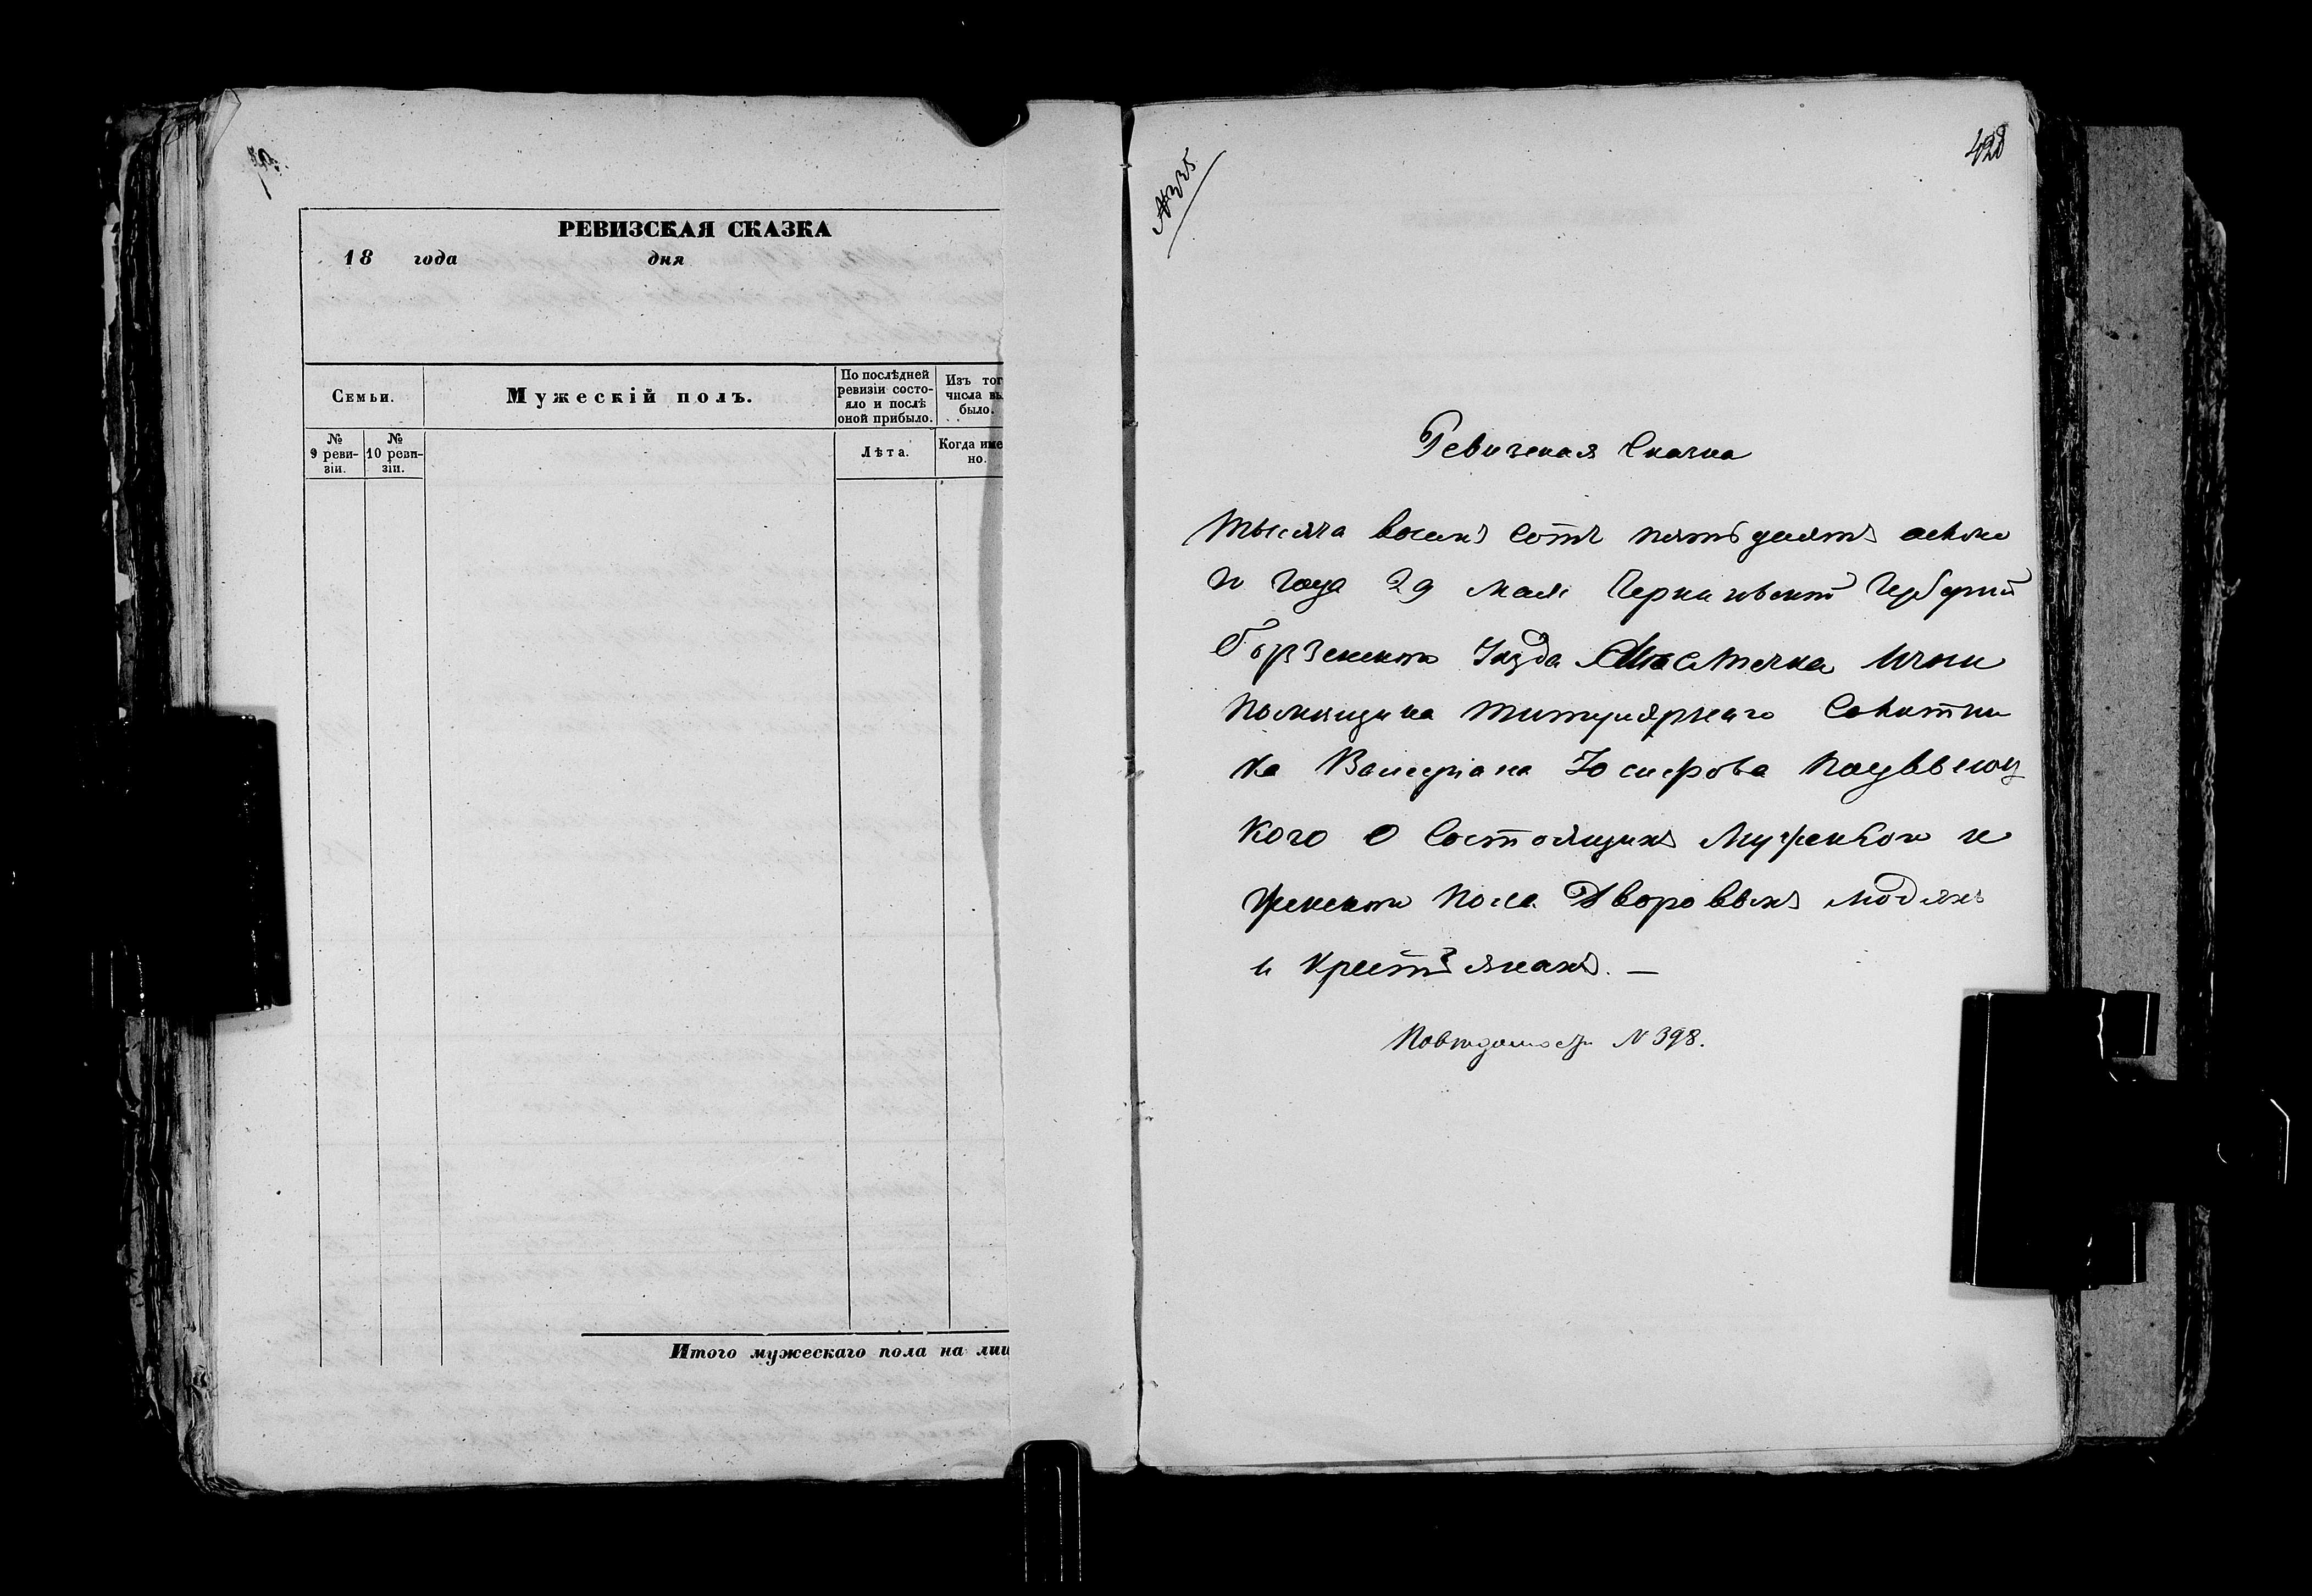 РЕВИЗСКАЯ СКАЗКА
18 года дня
Семьи.
Мужескій полъ.
По послѣдней
ревизіи состо-
яло и послѣ
оной прибыло.
Изъ тог
числа вы
было.
№
9 реви-
зіи.
№
10 реви-
зіи.
Лѣта.
Когда име
но.
Итого мужескаго пола на лиц
428
№ 335
Ревизская Сказка
Тысяча восемъ сотъ пятьдесятъ осьмо
го года 29 мая Черниговской Губерніи
Борзенского Уѣзда Мѣстечка Ични
Помѣщика титулярнаго Совѣтни
ка Валеріана Іосифова
кого О Состоящихъ Мужеского и
женского пола Дворовыхъ людяхъ
и крестьянахъ. —
По вѣдомости № 398.